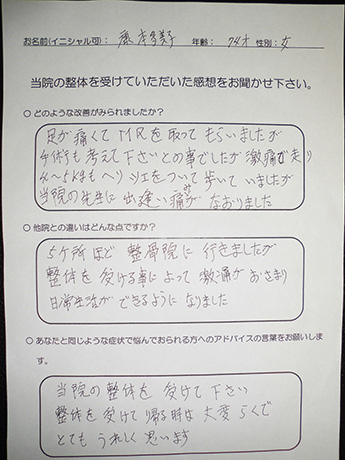 お名前(イニシャル可): 年齢: 74才 性別: 女
当院の整体を受けていただいた感想をお聞かせ下さい。
○ どのような改善がみられましたか?
足が痛くてMRを取ってもらいましたが
手術も考えて下さいとの事でしたが激痛で走り
4〜5kgもへりツエをついて歩いていましたが
当院の先生に出逢い痛みがなおりました
○ 他院との違いはどんな点ですか?
5ケ所ほど整骨院に行きましたが
整体を受ける事によって激痛がおさまり
日常生活ができるようになりました
○ あなたと同じような症状で悩んでおられる方へのアドバイスの言葉をお願いしま
す。
当院の整体を受けて下さい
整体を受けて帰る時は大変らくで
とてもうれしく思います